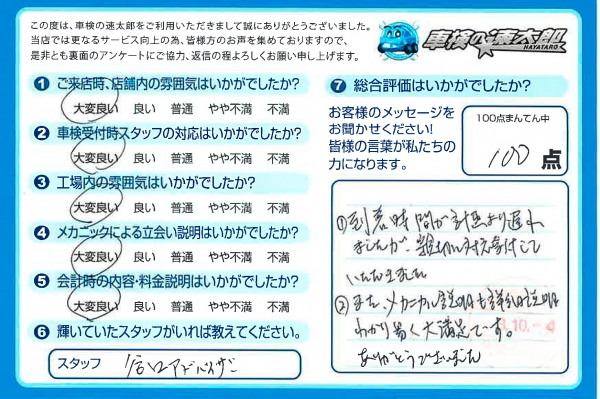 この度は、車検の速太郎をご利用いただきまして誠にありがとうございました。
当店では更なるサービス向上の為、皆様方のお声を集めておりますので、
是非とも裏面のアンケートにご協力、返信の程よろしくお願い申し上げます。
車検の速太郎
HAYATARO
1 ご来店時、店舗内の雰囲気はいかがでしたか?
大変良い 良い 普通 やや不満 不満
2 車検受付時スタッフの対応はいかがでしたか?
大変良い 良い 普通 やや不満 不満
3 工場内の雰囲気はいかがでしたか?
大変良い 良い 普通 やや不満 不満
4 メカニックによる立会い説明はいかがでしたか?
大変良い 良い 普通 やや不満 不満
5 会計時の内容・料金説明はいかがでしたか?
大変良い 良い 普通 やや不満 不満
6 輝いていたスタッフがいれば教えてください。
スタッフ 信口アドバイザー
7 総合評価はいかがでしたか?
お客様のメッセージを
お聞かせください!
皆様の言葉が私たちの
力になります。
100点まんてん中
100 点
①到着時間が計画より遅れ
ましたが、親切に対応受付して
いただきました
②また、メカニカル説明も詳細説明
わかり易く大満足です。
ありがとうございました
10.-4